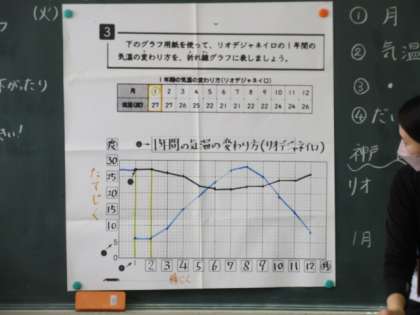 (火)
3
下のグラフ用紙を使って、リオデジャネイロの1年間の
気温の変わり方を、折れ線グラフに表しましょう。
1年間の気温の変わり方(リオデジャネイロ)
月 1 2 3 4 5 6 7 8 9 10 11 12
気温(度) 27 27 26 25 22 21 21 22 22 24 24 26
1年間の気温の変わり方(リオデジャネイロ)
度
30
25
20
15
10
5
0
たてじく
1 2 3 4 5 6 7 8 9 10 11 12 月
横じく
① 月
② 気温
③
④ だい
神戸
リオ
1月